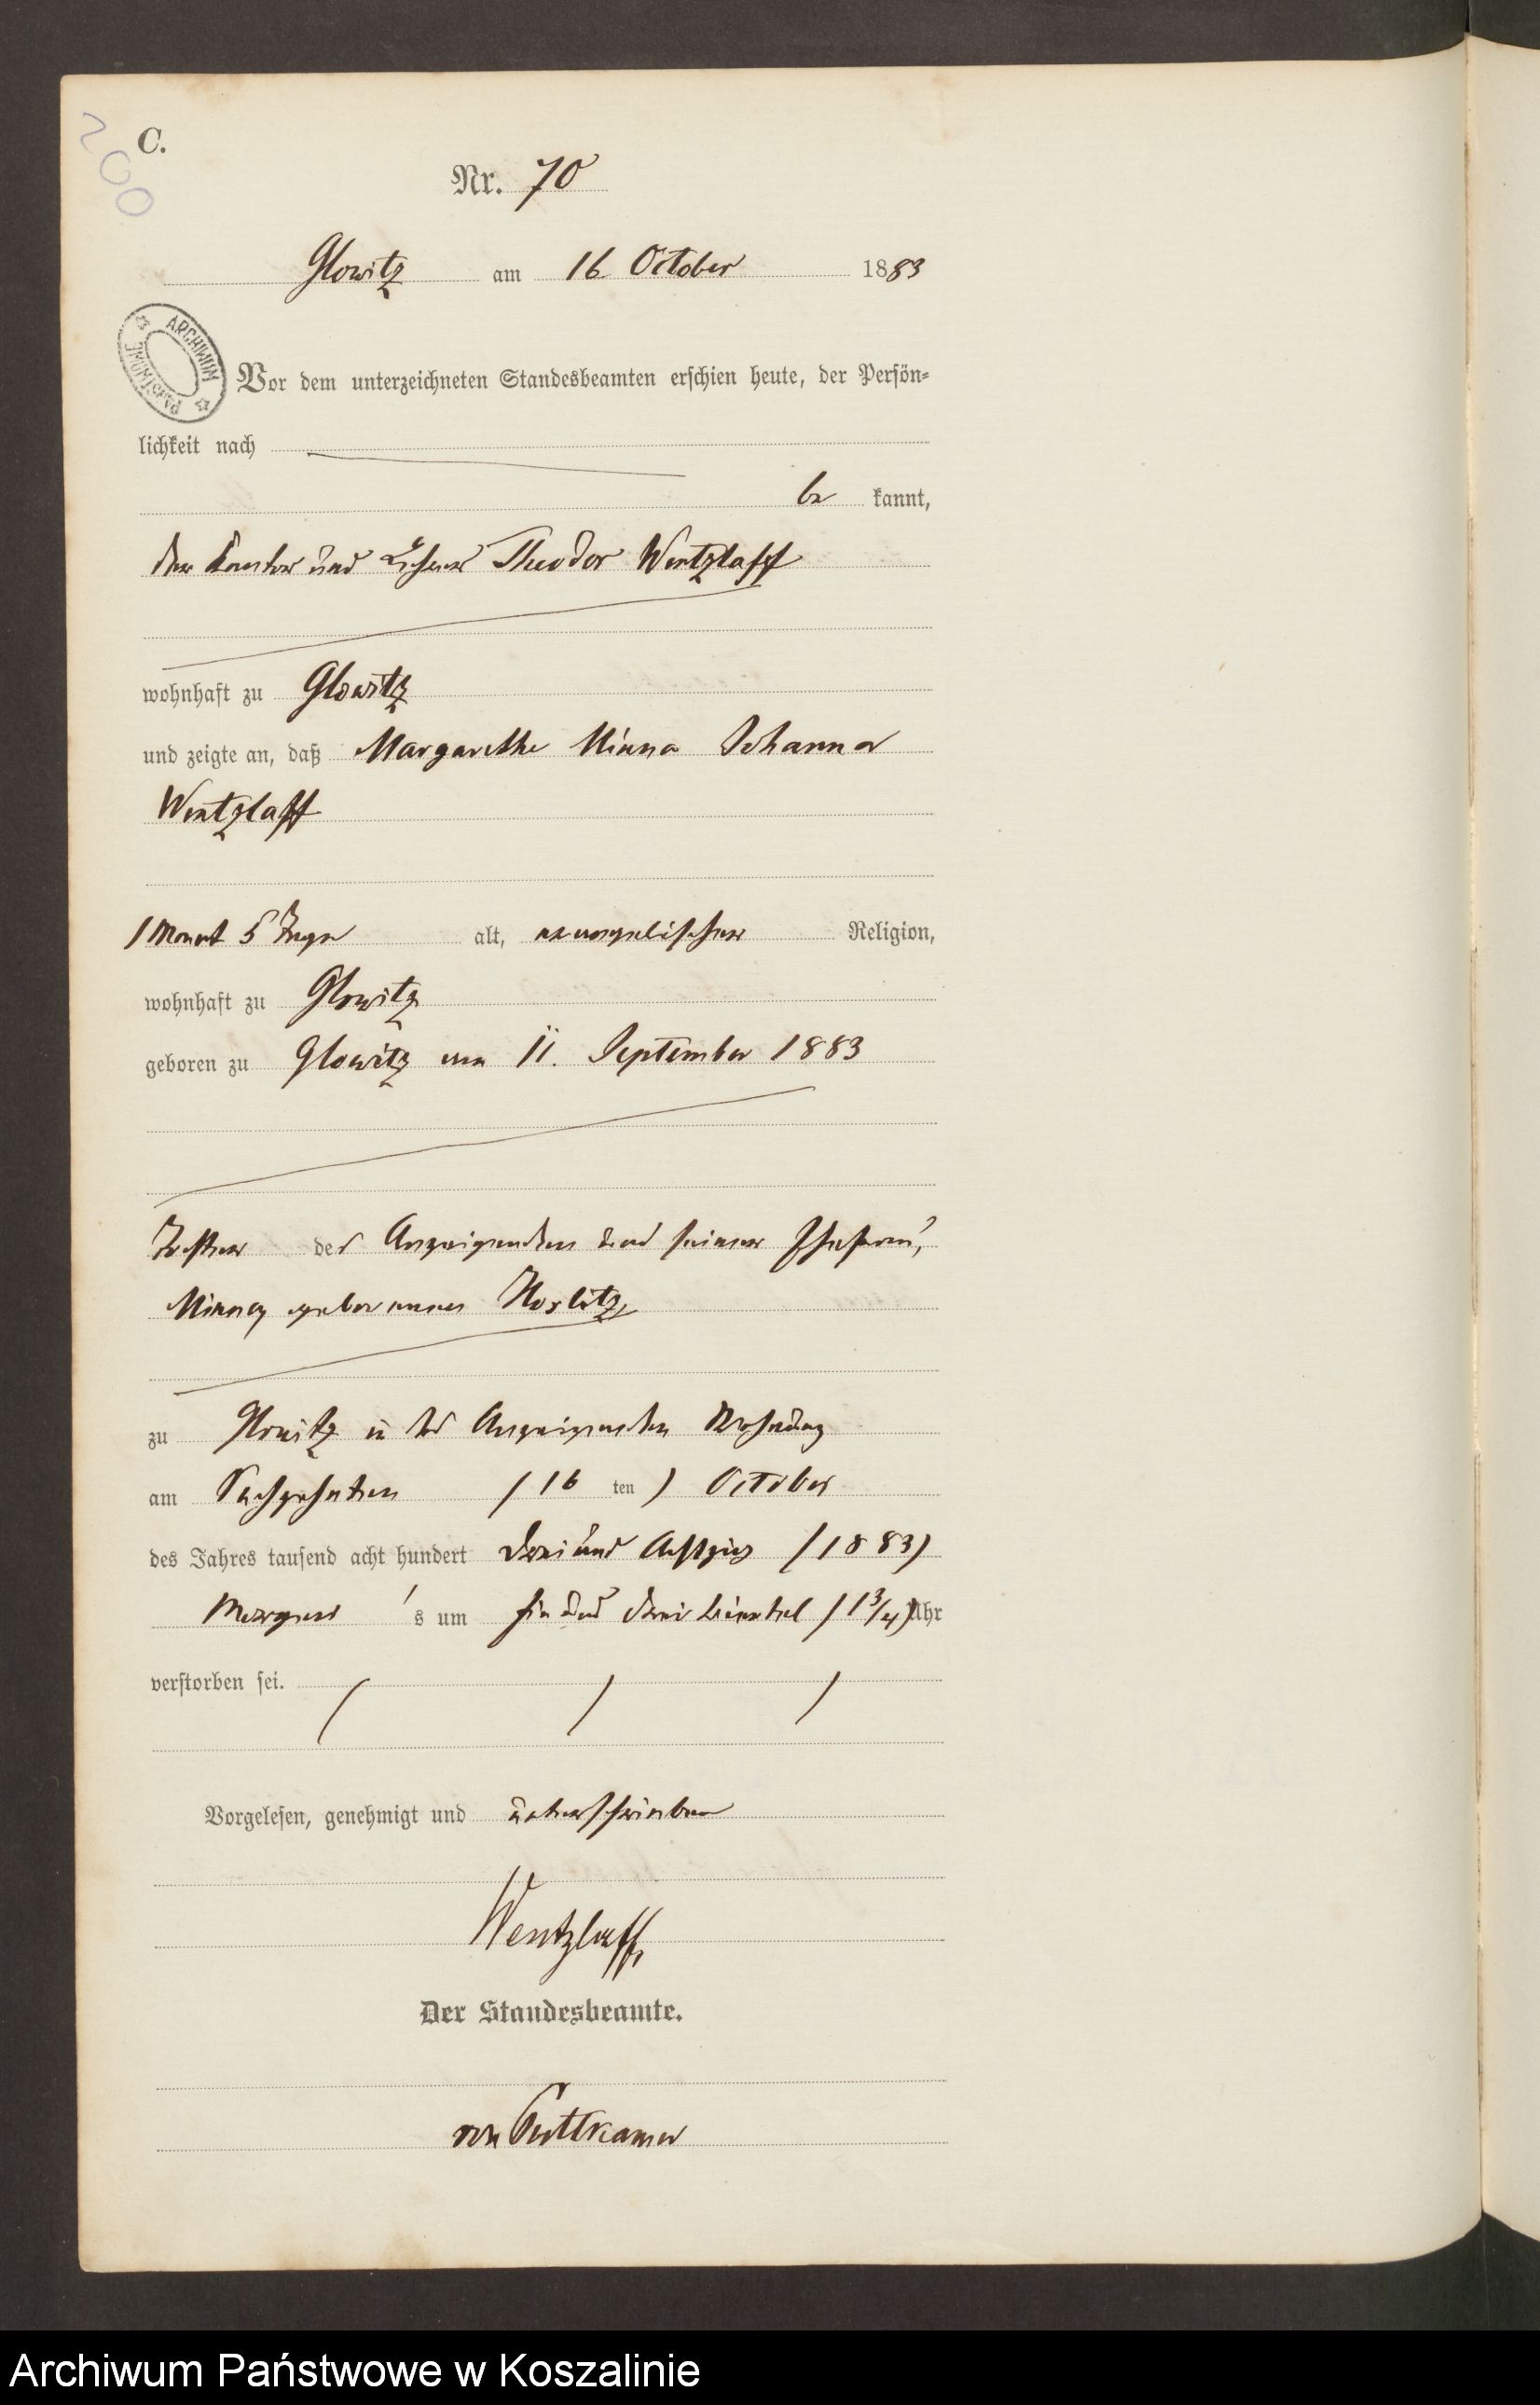 200
C.
Nr. 70
Glowitz am 16 October 1883
ARCHIWUM PAŃSTWOWE
Vor dem unterzeichneten Standesbeamten erschien heute, der Persön-
lichkeit nach
be kannt,
der Kantor und Lehrer Theodor Wentzlaff
wohnhaft zu Glowitz
und zeigte an, daß Margarethe Minna Johanna
Wentzlaff
1 Monat 5 Tage alt, evangelischer Religion,
wohnhaft zu Glowitz
geboren zu Glowitz am 11. September 1883
Tochter des Anzeigenden und seiner Ehefrau,
Minna geborenen
zu Glowitz in des Anzeigenden Wohnung
am Sechszehnten (16 ten) October
des Jahres tausend acht hundert drei und Achtzig (1883)
Morgens um ein und drei viertel (1 3/4) Uhr
verstorben sei.
Vorgelesen, genehmigt und unterschrieben
Wentzlaff
Der Standesbeamte.
von Puttkamer
Archiwum Państwowe w Koszalinie